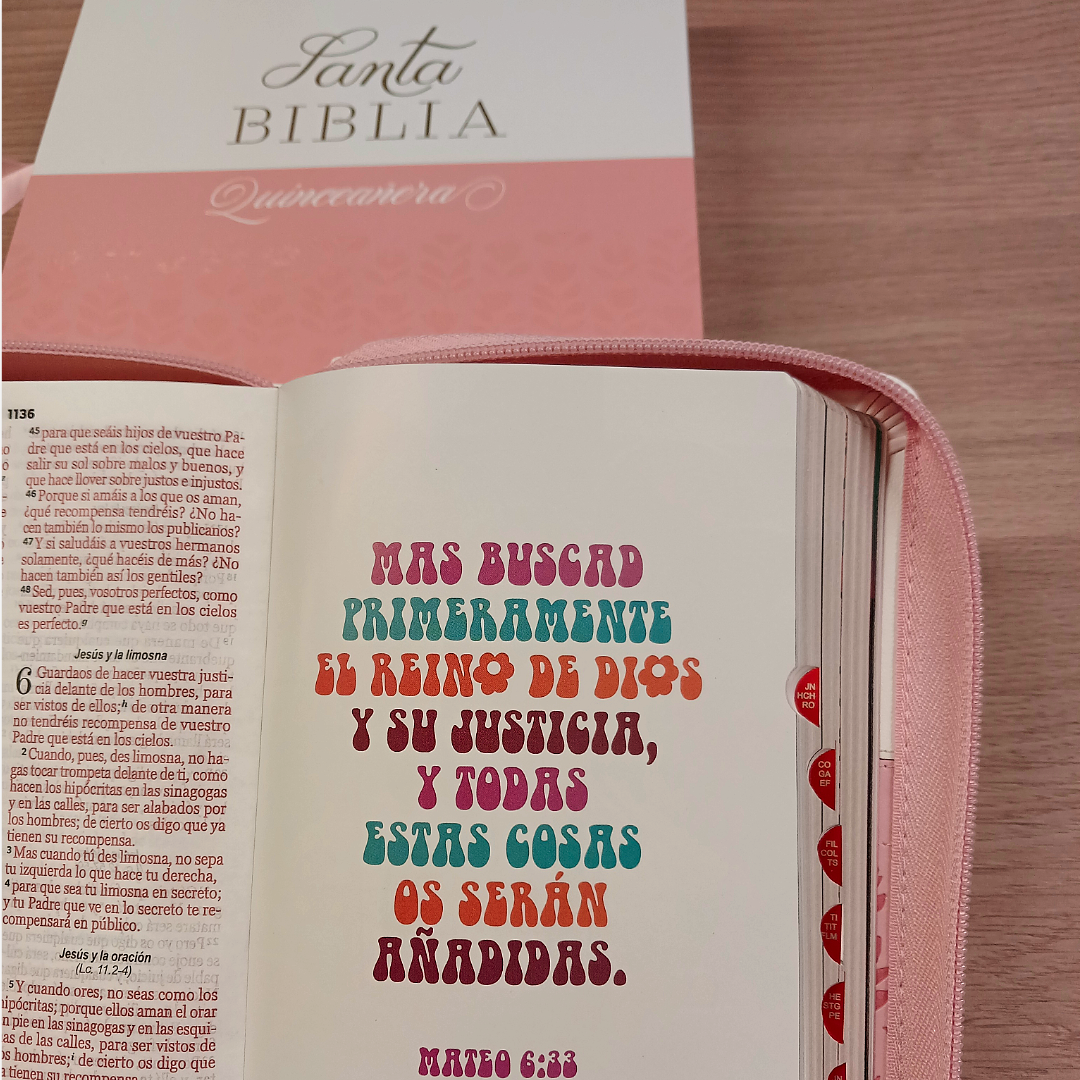 Santa
BIBLIA
Quinceañera
1136
45 para que seáis hijos de vuestro Pa-
dre que está en los cielos, que hace
salir su sol sobre malos y buenos, y
que hace llover sobre justos e injustos.
46 Porque si amáis a los que os aman,
¿qué recompensa tendréis? ¿No ha-
cen también lo mismo los publicanos?
47 Y si saludáis a vuestros hermanos
solamente, ¿qué hacéis de más? ¿No
hacen también así los gentiles?
48 Sed, pues, vosotros perfectos, como
vuestro Padre que está en los cielos
es perfecto.g
Jesús y la limosna
6 Guardaos de hacer vuestra justi-
cia delante de los hombres, para
ser vistos de ellos;h de otra manera
no tendréis recompensa de vuestro
Padre que está en los cielos.
2 Cuando, pues, des limosna, no ha-
gas tocar trompeta delante de ti, como
hacen los hipócritas en las sinagogas
y en las calles, para ser alabados por
los hombres; de cierto os digo que ya
tienen su recompensa.
3 Mas cuando tú des limosna, no sepa
tu izquierda lo que hace tu derecha,
4 para que sea tu limosna en secreto;
y tu Padre que ve en lo secreto te re-
compensará en público.
Jesús y la oración
(Lc. 11.2-4)
5 Y cuando ores, no seas como los
hipócritas; porque ellos aman el orar
en pie en las sinagogas y en las esqui-
as de las calles, para ser vistos de
os hombres;i de cierto os digo que
a tienen su recompensa.
MAS BUSCAD
PRIMERAMENTE
EL REINO DE DIOS
Y SU JUSTICIA,
Y TODAS
ESTAS COSAS
OS SERÁN
AÑADIDAS.
MATEO 6:33
JN
HCH
RO
CO
GA
EF
FIL
COL
TS
TI
TIT
FLM
HE
STG
PE
JN